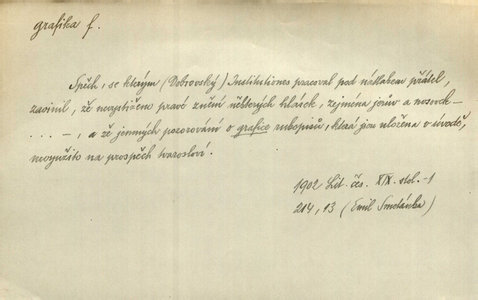 grafika f.
Spěch, se kterým (Dobrovský) Institutiones pracoval pod nátlakem přátel,
zavinil, že nevystiženo pravé znění některých hlásek, zejména jerův a nosovek —
. . . . —, a že jemných pozorování o grafice rukopisů, která jsou uložena v úvodě,
nevyužito na prospěch tvarosloví.
1902 Lit. čes. XIX. stol. -1
214, 13 (Emil Smetánka)